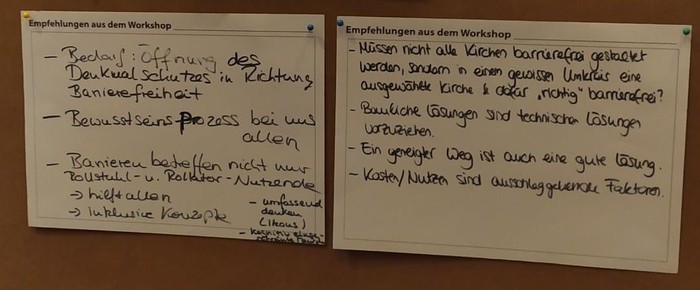 Empfehlungen aus dem Workshop
- Bedarf: Öffnung des
Denkmalschutzes in Richtung
Barrierefreiheit
- Bewusstseins-Prozess bei uns
allen
- Barrieren betreffen nicht nur
Rollstuhl- u. Rollator-Nutzende
→ hilft allen
→ inklusive Konzepte
- umfassend
denken
Empfehlungen aus dem Workshop
- Müssen nicht alle Kirchen barrierefrei gestaltet
werden, sondern in einem gewissen Umkreis eine
ausgewählte Kirche & dafür „richtig" barrierefrei?
- Bauliche Lösungen sind technischen Lösungen
vorzuziehen.
- Ein geneigter Weg ist auch eine gute Lösung.
- Kosten/Nutzen sind ausschlaggebende Faktoren.